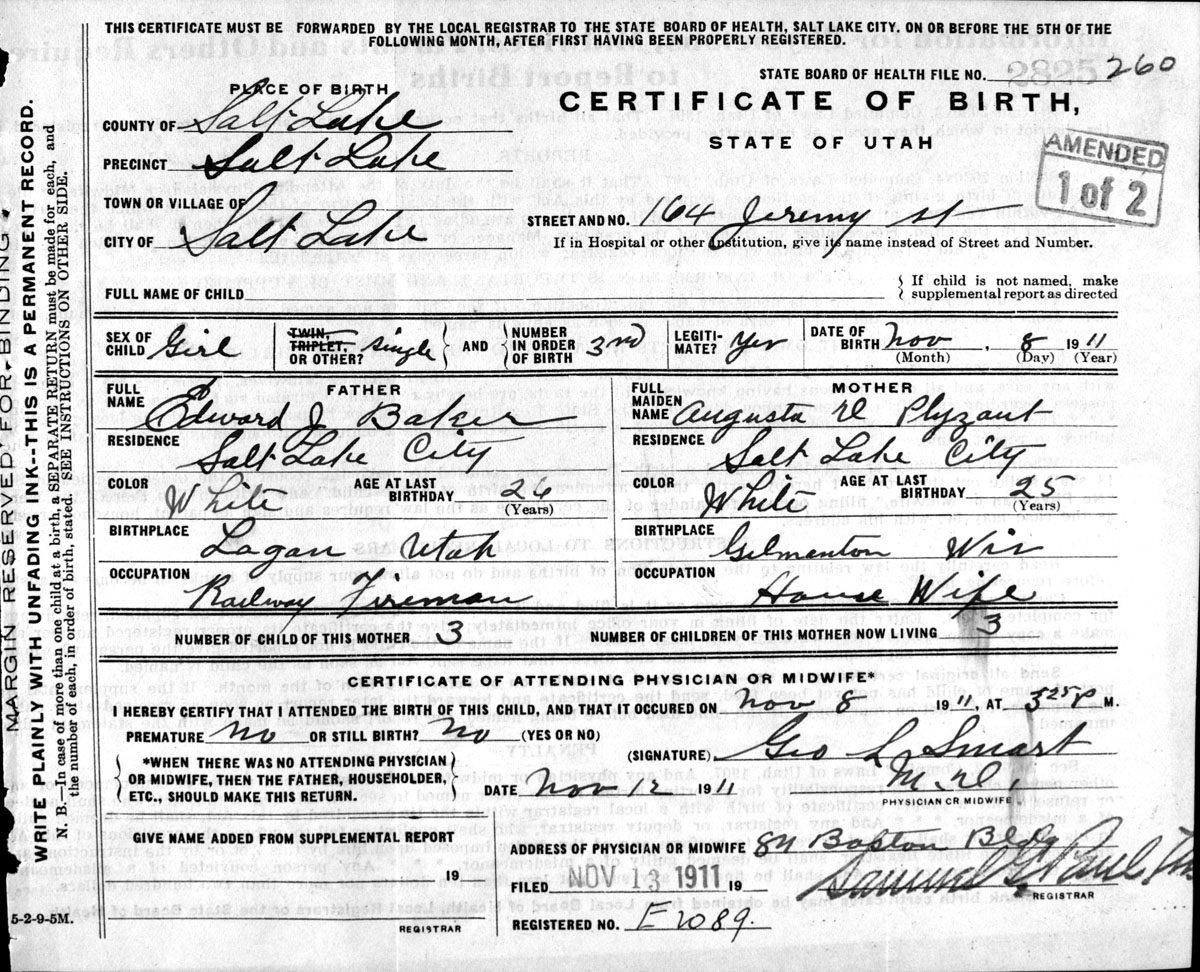 THIS CERTIFICATE MUST BE FORWARDED BY THE LOCAL REGISTRAR TO THE STATE BOARD OF HEALTH, SALT LAKE CITY, ON OR BEFORE THE 5TH OF THE
FOLLOWING MONTH, AFTER FIRST HAVING BEEN PROPERLY REGISTERED.
STATE BOARD OF HEALTH FILE NO. 260
PLACE OF BIRTH
CERTIFICATE OF BIRTH,
STATE OF UTAH
AMENDED
1 of 2
COUNTY OF Salt Lake
PRECINCT Salt Lake
TOWN OR VILLAGE OF
STREET AND NO. 64 Jeremy st
CITY OF Salt Lake
If in Hospital or other Institution, give its name instead of Street and Number.
FULL NAME OF CHILD
If child is not named, make
supplemental report as directed
SEX OF CHILD Girl
TWIN, TRIPLET, OR OTHER? single
AND
NUMBER IN ORDER OF BIRTH 3rd
LEGITIMATE? Yes
DATE OF BIRTH Nov, 8 1911
(Month) (Day) (Year)
FATHER
FULL NAME Edward J Baker
RESIDENCE
Salt Lake City
COLOR White
AGE AT LAST BIRTHDAY 26
(Years)
BIRTHPLACE
Logan Utah
OCCUPATION
Railway Fireman
MOTHER
FULL MAIDEN NAME Augusta D Plyzant
RESIDENCE
Salt Lake City
COLOR White
AGE AT LAST BIRTHDAY 25
(Years)
BIRTHPLACE
Gilmanton Wis
OCCUPATION
House Wife
NUMBER OF CHILD OF THIS MOTHER 3
NUMBER OF CHILDREN OF THIS MOTHER NOW LIVING 3
CERTIFICATE OF ATTENDING PHYSICIAN OR MIDWIFE*
I HEREBY CERTIFY THAT I ATTENDED THE BIRTH OF THIS CHILD, AND THAT IT OCCURED ON Nov 8 1911, AT 525P M.
PREMATURE No OR STILL BIRTH? No (YES OR NO)
*WHEN THERE WAS NO ATTENDING PHYSICIAN
OR MIDWIFE, THEN THE FATHER, HOUSEHOLDER,
ETC., SHOULD MAKE THIS RETURN.
(SIGNATURE) Geo L Smart
M.D.
PHYSICIAN OR MIDWIFE
DATE Nov 12 1911
GIVEN NAME ADDED FROM SUPPLEMENTAL REPORT
19
REGISTRAR
ADDRESS OF PHYSICIAN OR MIDWIFE 84 Boston Bldg
FILED NOV 13 1911 19
REGISTRAR
REGISTERED NO. E2089.
5-2-9-5M.
MARGIN RESERVED FOR BINDING
WRITE PLAINLY WITH UNFADING INK--THIS IS A PERMANENT RECORD.
N. B.—In case of more than one child at a birth, a SEPARATE RETURN must be made for each, and
the number of each, in order of birth, stated. SEE INSTRUCTIONS ON OTHER SIDE.